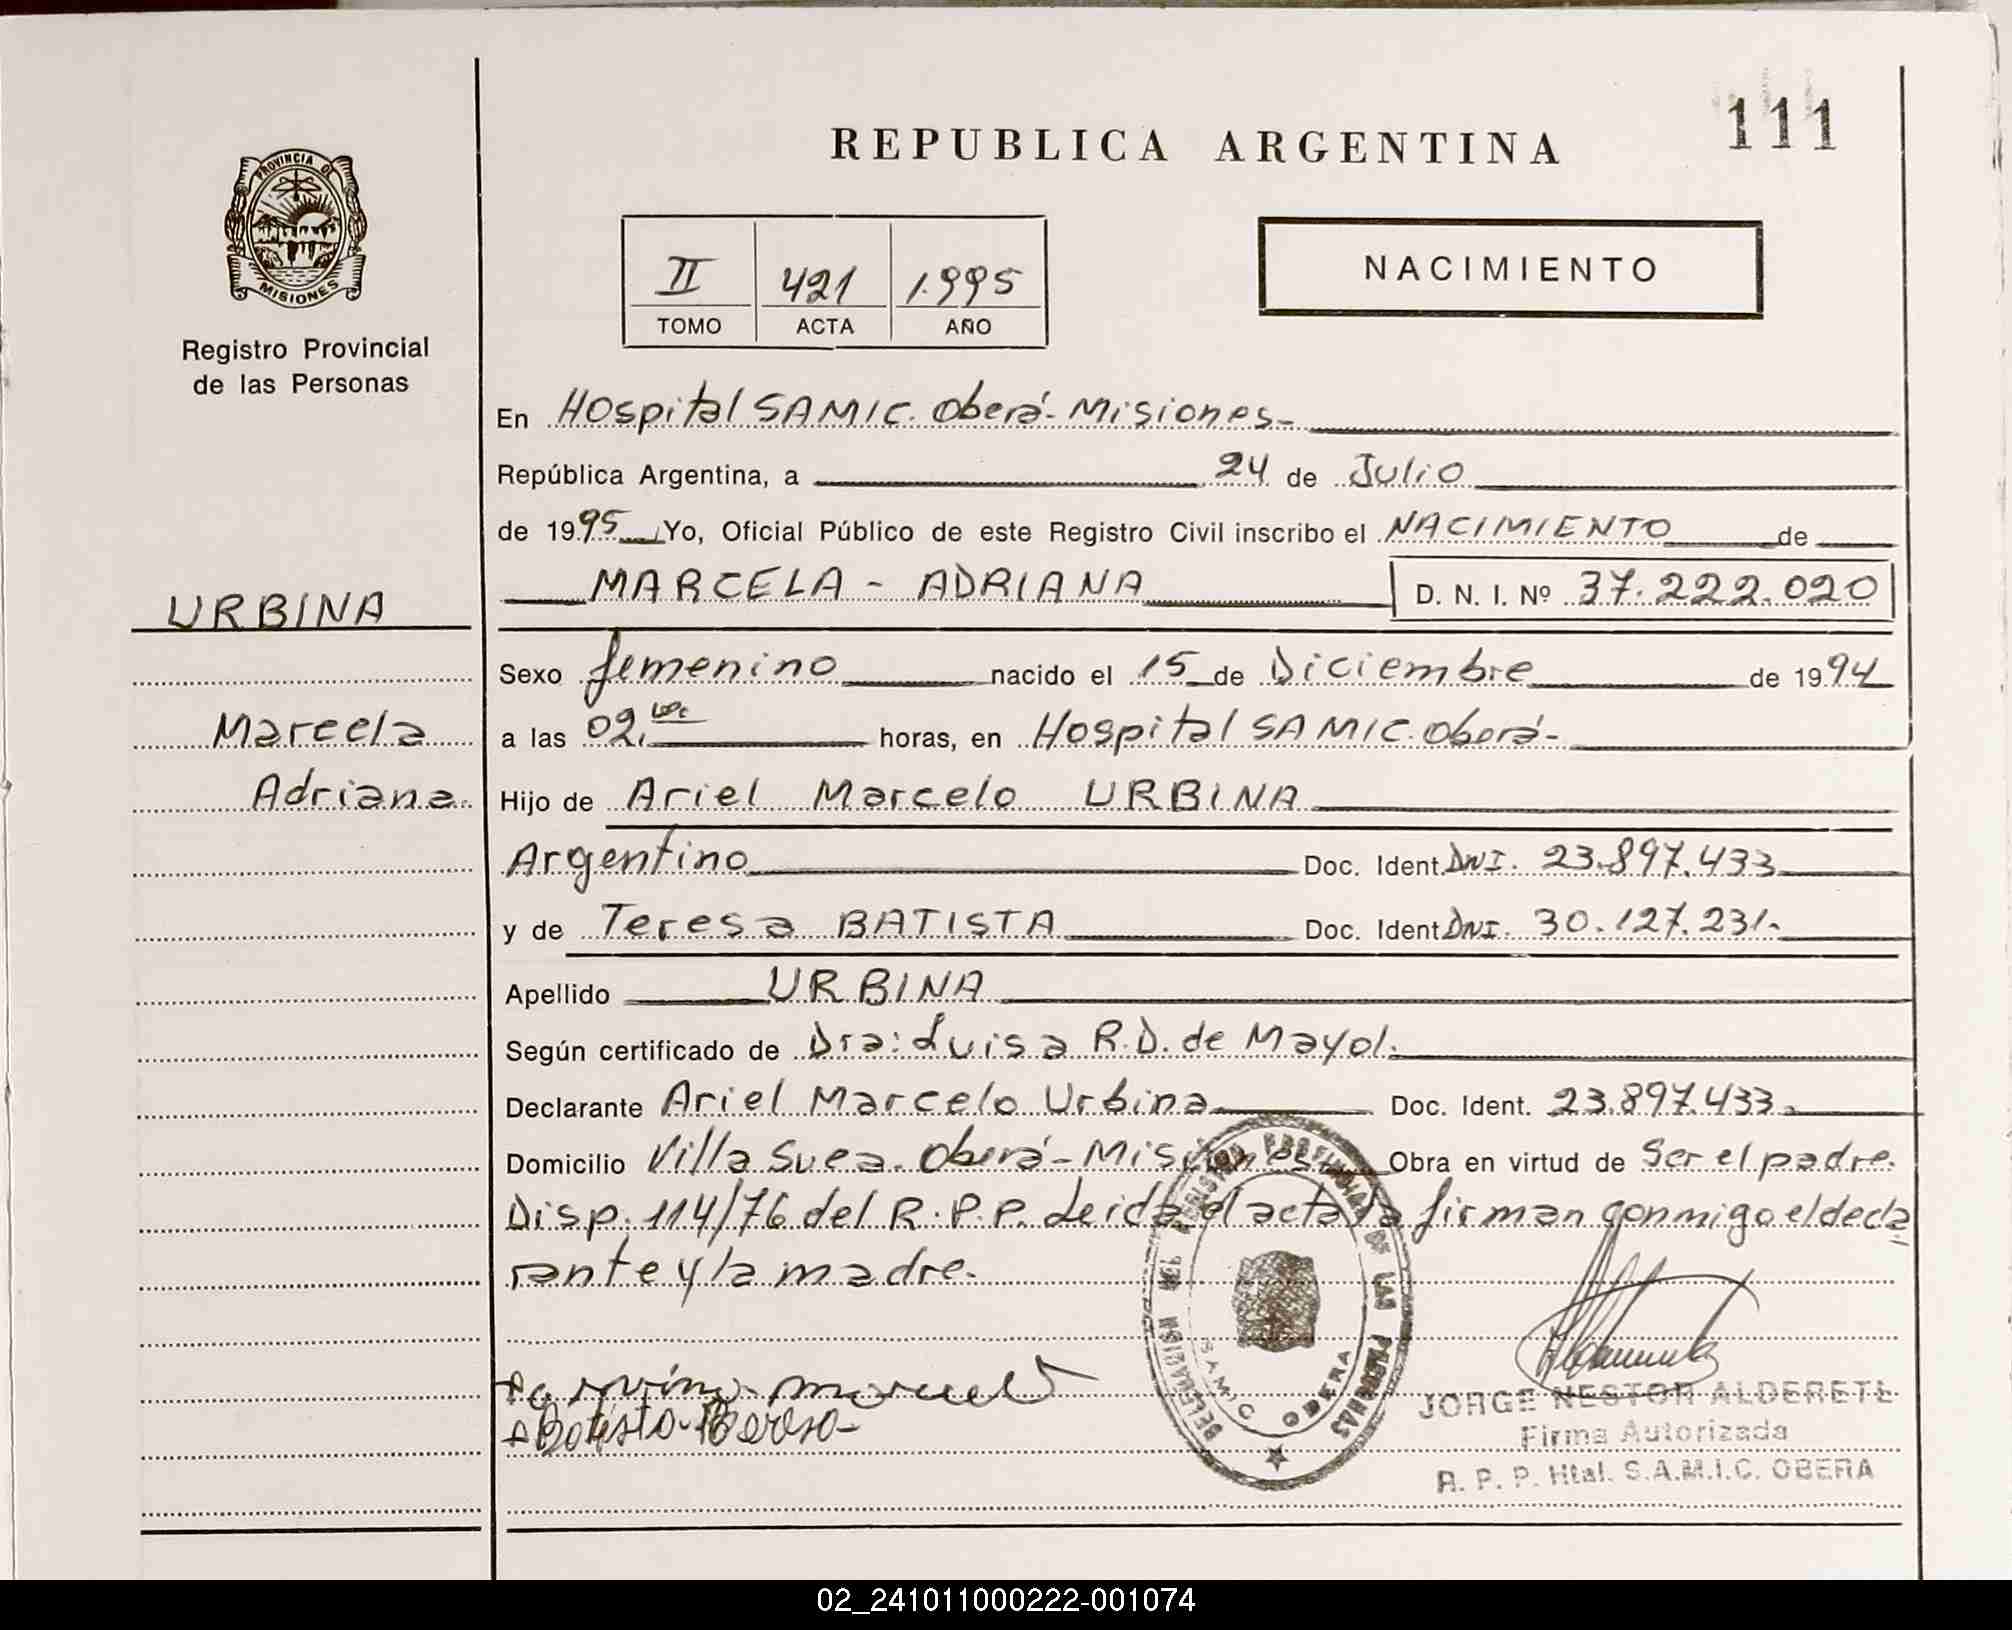 111
REPUBLICA ARGENTINA
PROVINCIA DE
MISIONES
Registro Provincial
de las Personas
II 421 1.995
TOMO ACTA AÑO
NACIMIENTO
En Hospital SAMIC. Oberá - Misiones -
República Argentina, a 24 de Julio
de 1995 Yo, Oficial Público de este Registro Civil inscribo el NACIMIENTO de
URBINA
MARCELA - ADRIANA D. N. I. Nº 37.222.020
Sexo femenino nacido el 15 de Diciembre de 1994
Marcela
a las 02, horas, en Hospital SAMIC. Oberá -
Adriana.
Hijo de Ariel Marcelo URBINA
Argentino Doc. Ident. DNI. 23.897.433
y de Teresa BATISTA Doc. Ident DNI. 30.127.231.
Apellido URBINA
Según certificado de Dra: Luisa R.D. de Mayol.
Declarante Ariel Marcelo Urbina Doc. Ident. 23.897.433
Domicilio Villa Suea. Oberá - Misiones Obra en virtud de Ser el padre.
Disp. 114/76 del R.P.P. Leida el acta la firman conmigo el decla
rante y la madre.
DELEGACION DEL REGISTRO PROVINCIAL DE LAS PERSONAS
SAMIC OBERA
Batista Teresa
JORGE NESTOR ALDERETE
Firma Autorizada
R. P. P. Htal. S.A.M.I.C. OBERA
02_241011000222-001074